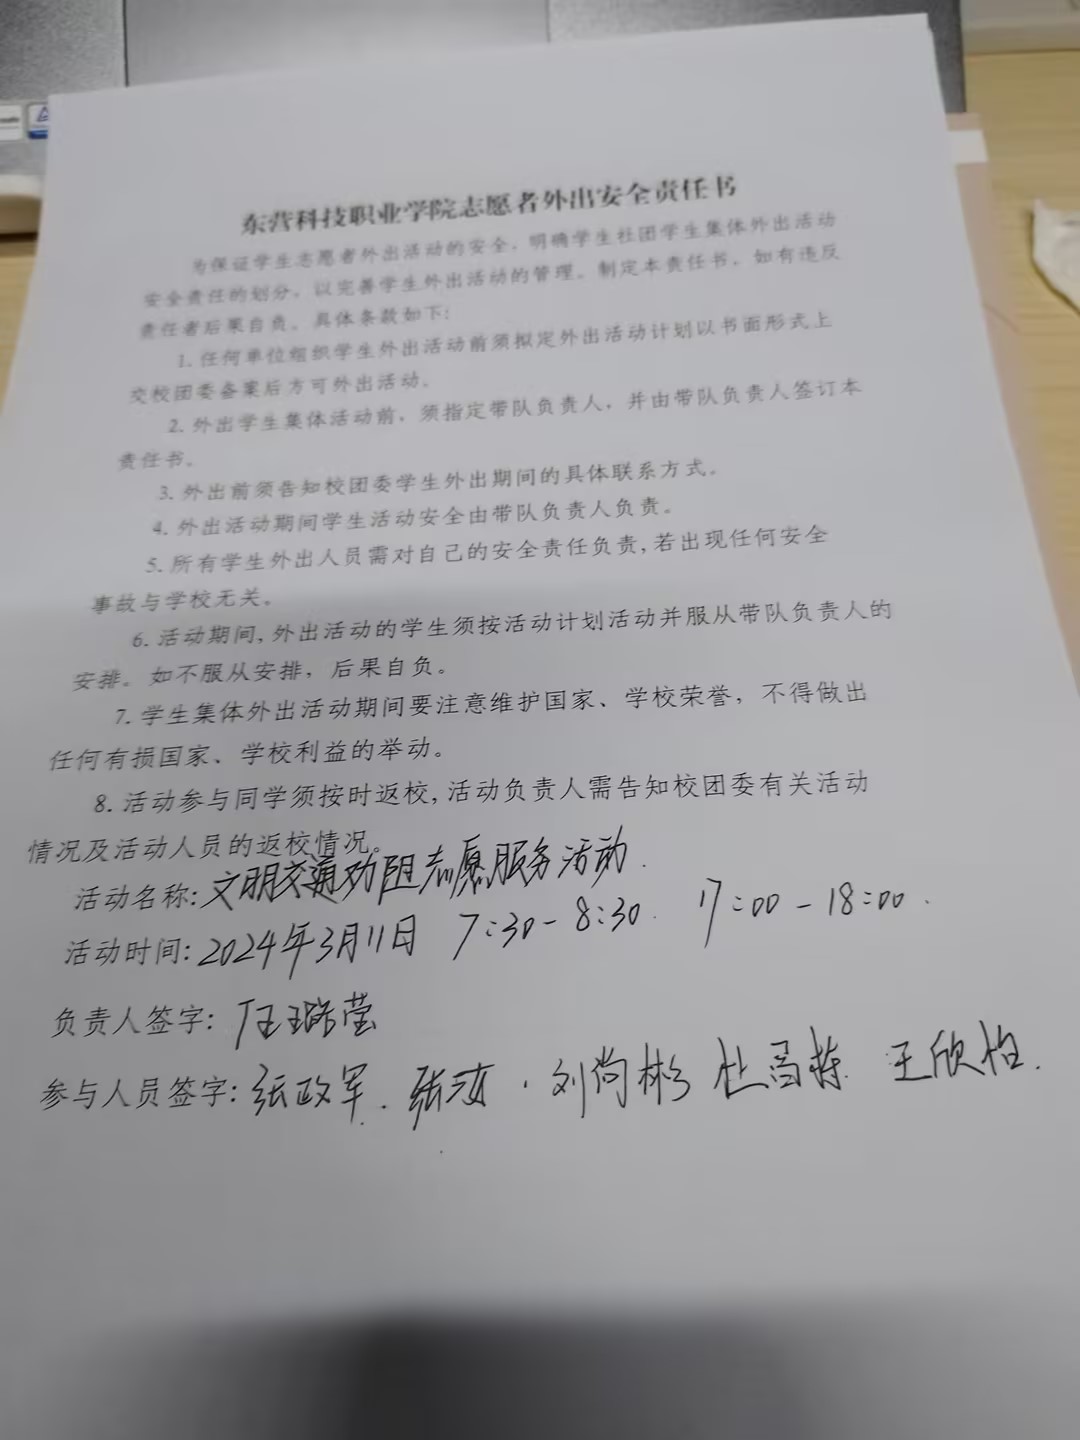 东营科技职业学院志愿者外出安全责任书
为保证学生志愿者外出活动的安全，明确学生社团学生集体外出活动
安全责任的划分，以完善学生外出活动的管理。制定本责任书，如有违反
责任者后果自负。具体条款如下：
1. 任何单位组织学生外出活动前须拟定外出活动计划以书面形式上
交校团委备案后方可外出活动。
2. 外出学生集体活动前，须指定带队负责人，并由带队负责人签订本
责任书。
3. 外出前须告知校团委学生外出期间的具体联系方式。
4. 外出活动期间学生活动安全由带队负责人负责。
5. 所有学生外出人员需对自己的安全责任负责,若出现任何安全
事故与学校无关。
6. 活动期间,外出活动的学生须按活动计划活动并服从带队负责人的
安排。如不服从安排，后果自负。
7. 学生集体外出活动期间要注意维护国家、学校荣誉，不得做出
任何有损国家、学校利益的举动。
8. 活动参与同学须按时返校,活动负责人需告知校团委有关活动
情况及活动人员的返校情况。
活动名称: 文明交通劝阻志愿服务活动.
活动时间: 2024年3月11日 7:30-8:30. 17:00-18:00.
负责人签字: 王璐莹
参与人员签字: 张政军. 张 . 刘尚彬 杜昌栋. 王欣怡.